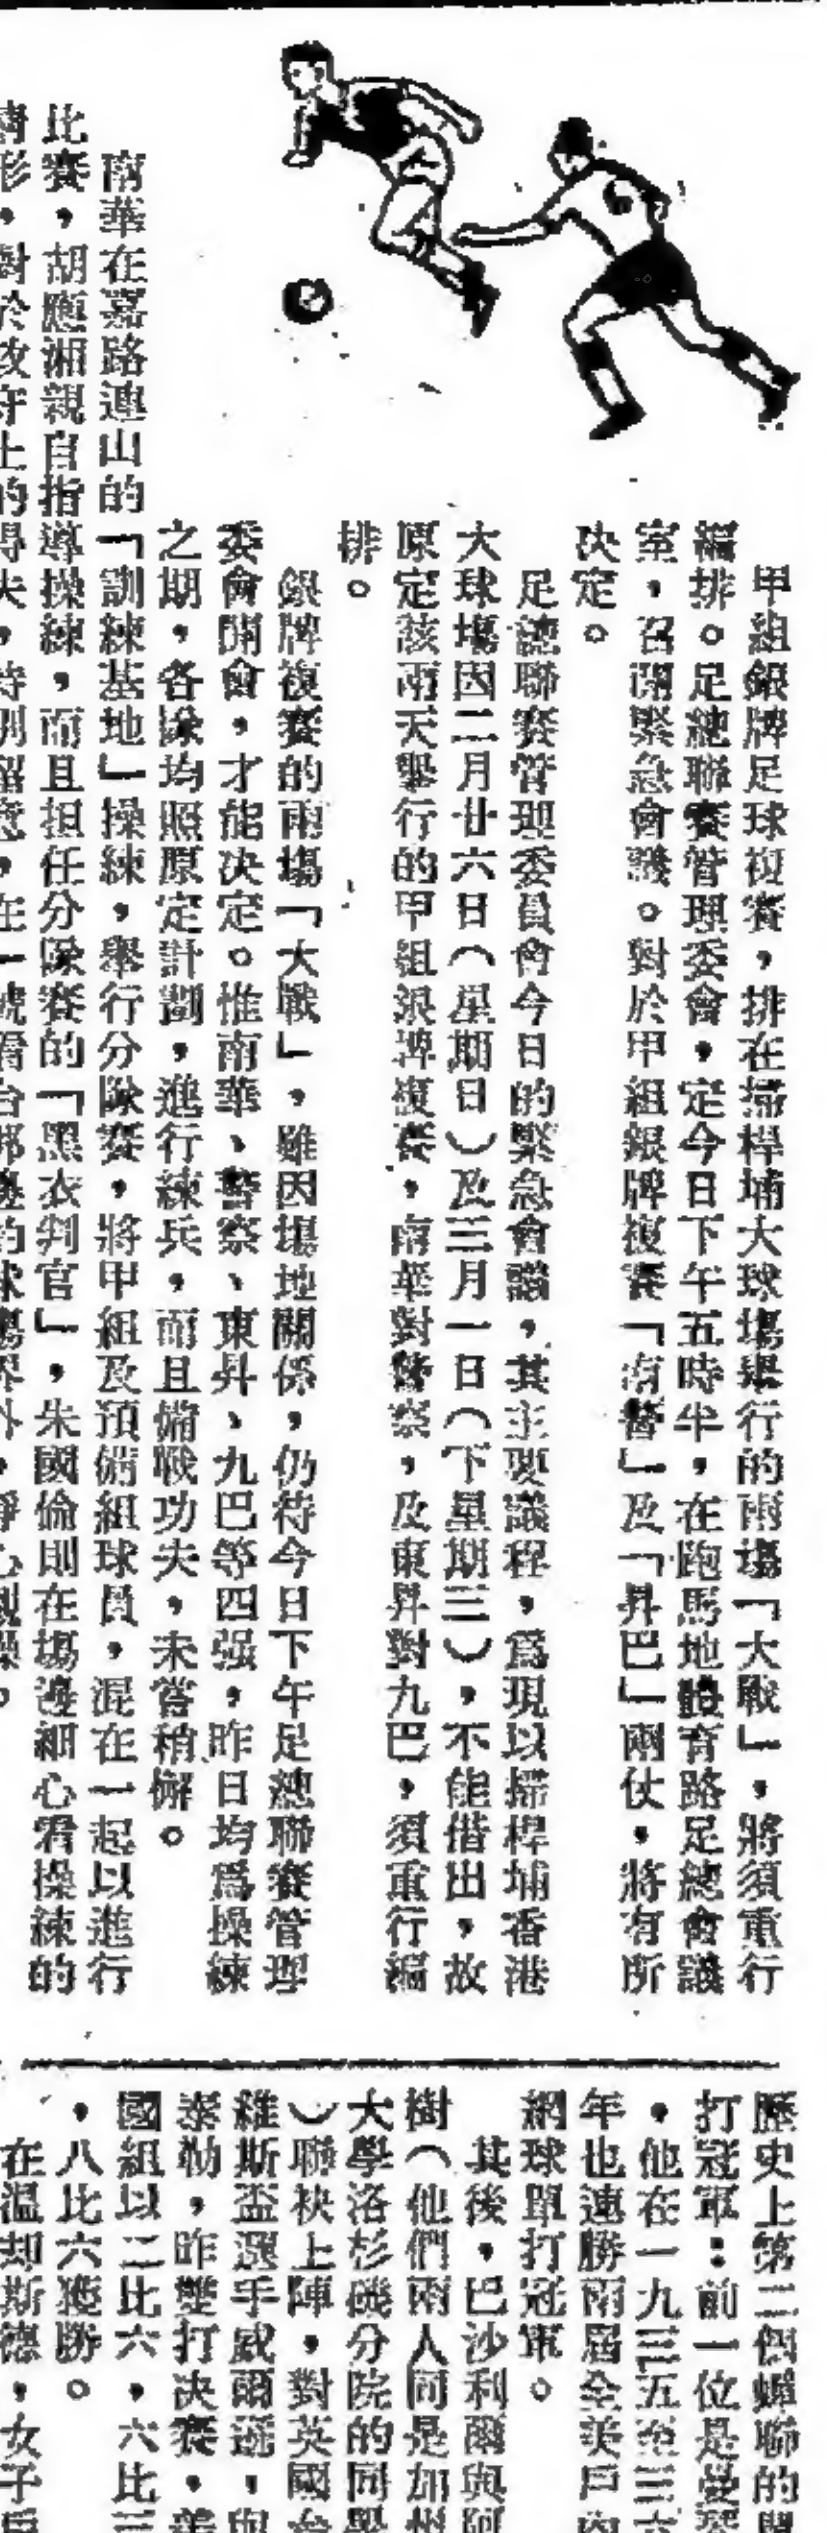 甲組銀牌足球複賽，排在掃桿埔大球塲舉行的兩塲「大戰」，將須重行
編排。足總聯賽管理委會，定今日下午五時半，在跑馬地體育路足總會議
室，召開緊急會議。對於甲組銀牌複賽「南警」及「昇巴」兩仗，將有所
決定。
足總聯賽管理委員會今日的緊急會議，其主要議程，爲現以掃桿埔香港
大球塲因二月廿六日（星期日）及三月一日（下星期三），不能借出，故
原定該兩天舉行的甲組銀牌複賽，南華對警察，及東昇對九巴，須重行編
排。
銀牌複賽的兩塲「大戰」，雖因塲地關係，仍待今日下午足總聯賽管理
委會開會，才能決定。惟南華、警察、東昇、九巴等四强，昨日均爲操練
之期，各隊均照原定計劃，進行練兵，而且備戰功夫，未嘗稍懈。
南華在嘉路連山的「訓練基地」操練，舉行分隊賽，將甲組及預備組球員，混在一起以進行
比賽，胡應湘親自指導操練，而且担任分隊賽的「黑衣判官」，朱國倫則在塲邊細心看操練的
情形，對於攻守上的得失，特別留意，在一號看台那邊的球塲界外，靜心觀操。
歷史上第二個蟬聯的
打冠軍：前一位是曼
，他在一九三五至三六
年也連勝兩屆全美戶內
網球單打冠軍。
其後，巴沙利爾與阿
樹（他們兩人同是加州
大學洛杉磯分院的同學
）聯袂上陣，對英國台
維斯盃選手威爾遜，與
泰勒，昨雙打決賽，美
國組以二比六，六比三
，八比六獲勝。
在溫却斯德，女子戶